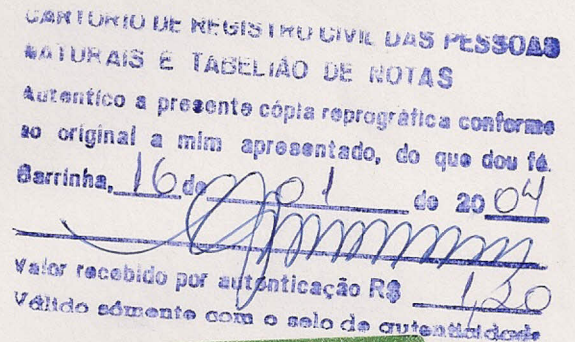 CARTÓRIO DE REGISTRO CIVIL DAS PESSOAS
NATURAIS E TABELIÃO DE NOTAS
Autentico a presente cópia reprográfica conforme
ao original a mim apresentado, do que dou fé.
Barrinha, 16 de 01 de 20 04
Valor recebido por autenticação R$ 1,20
Válido sómente com o selo de autenticidade